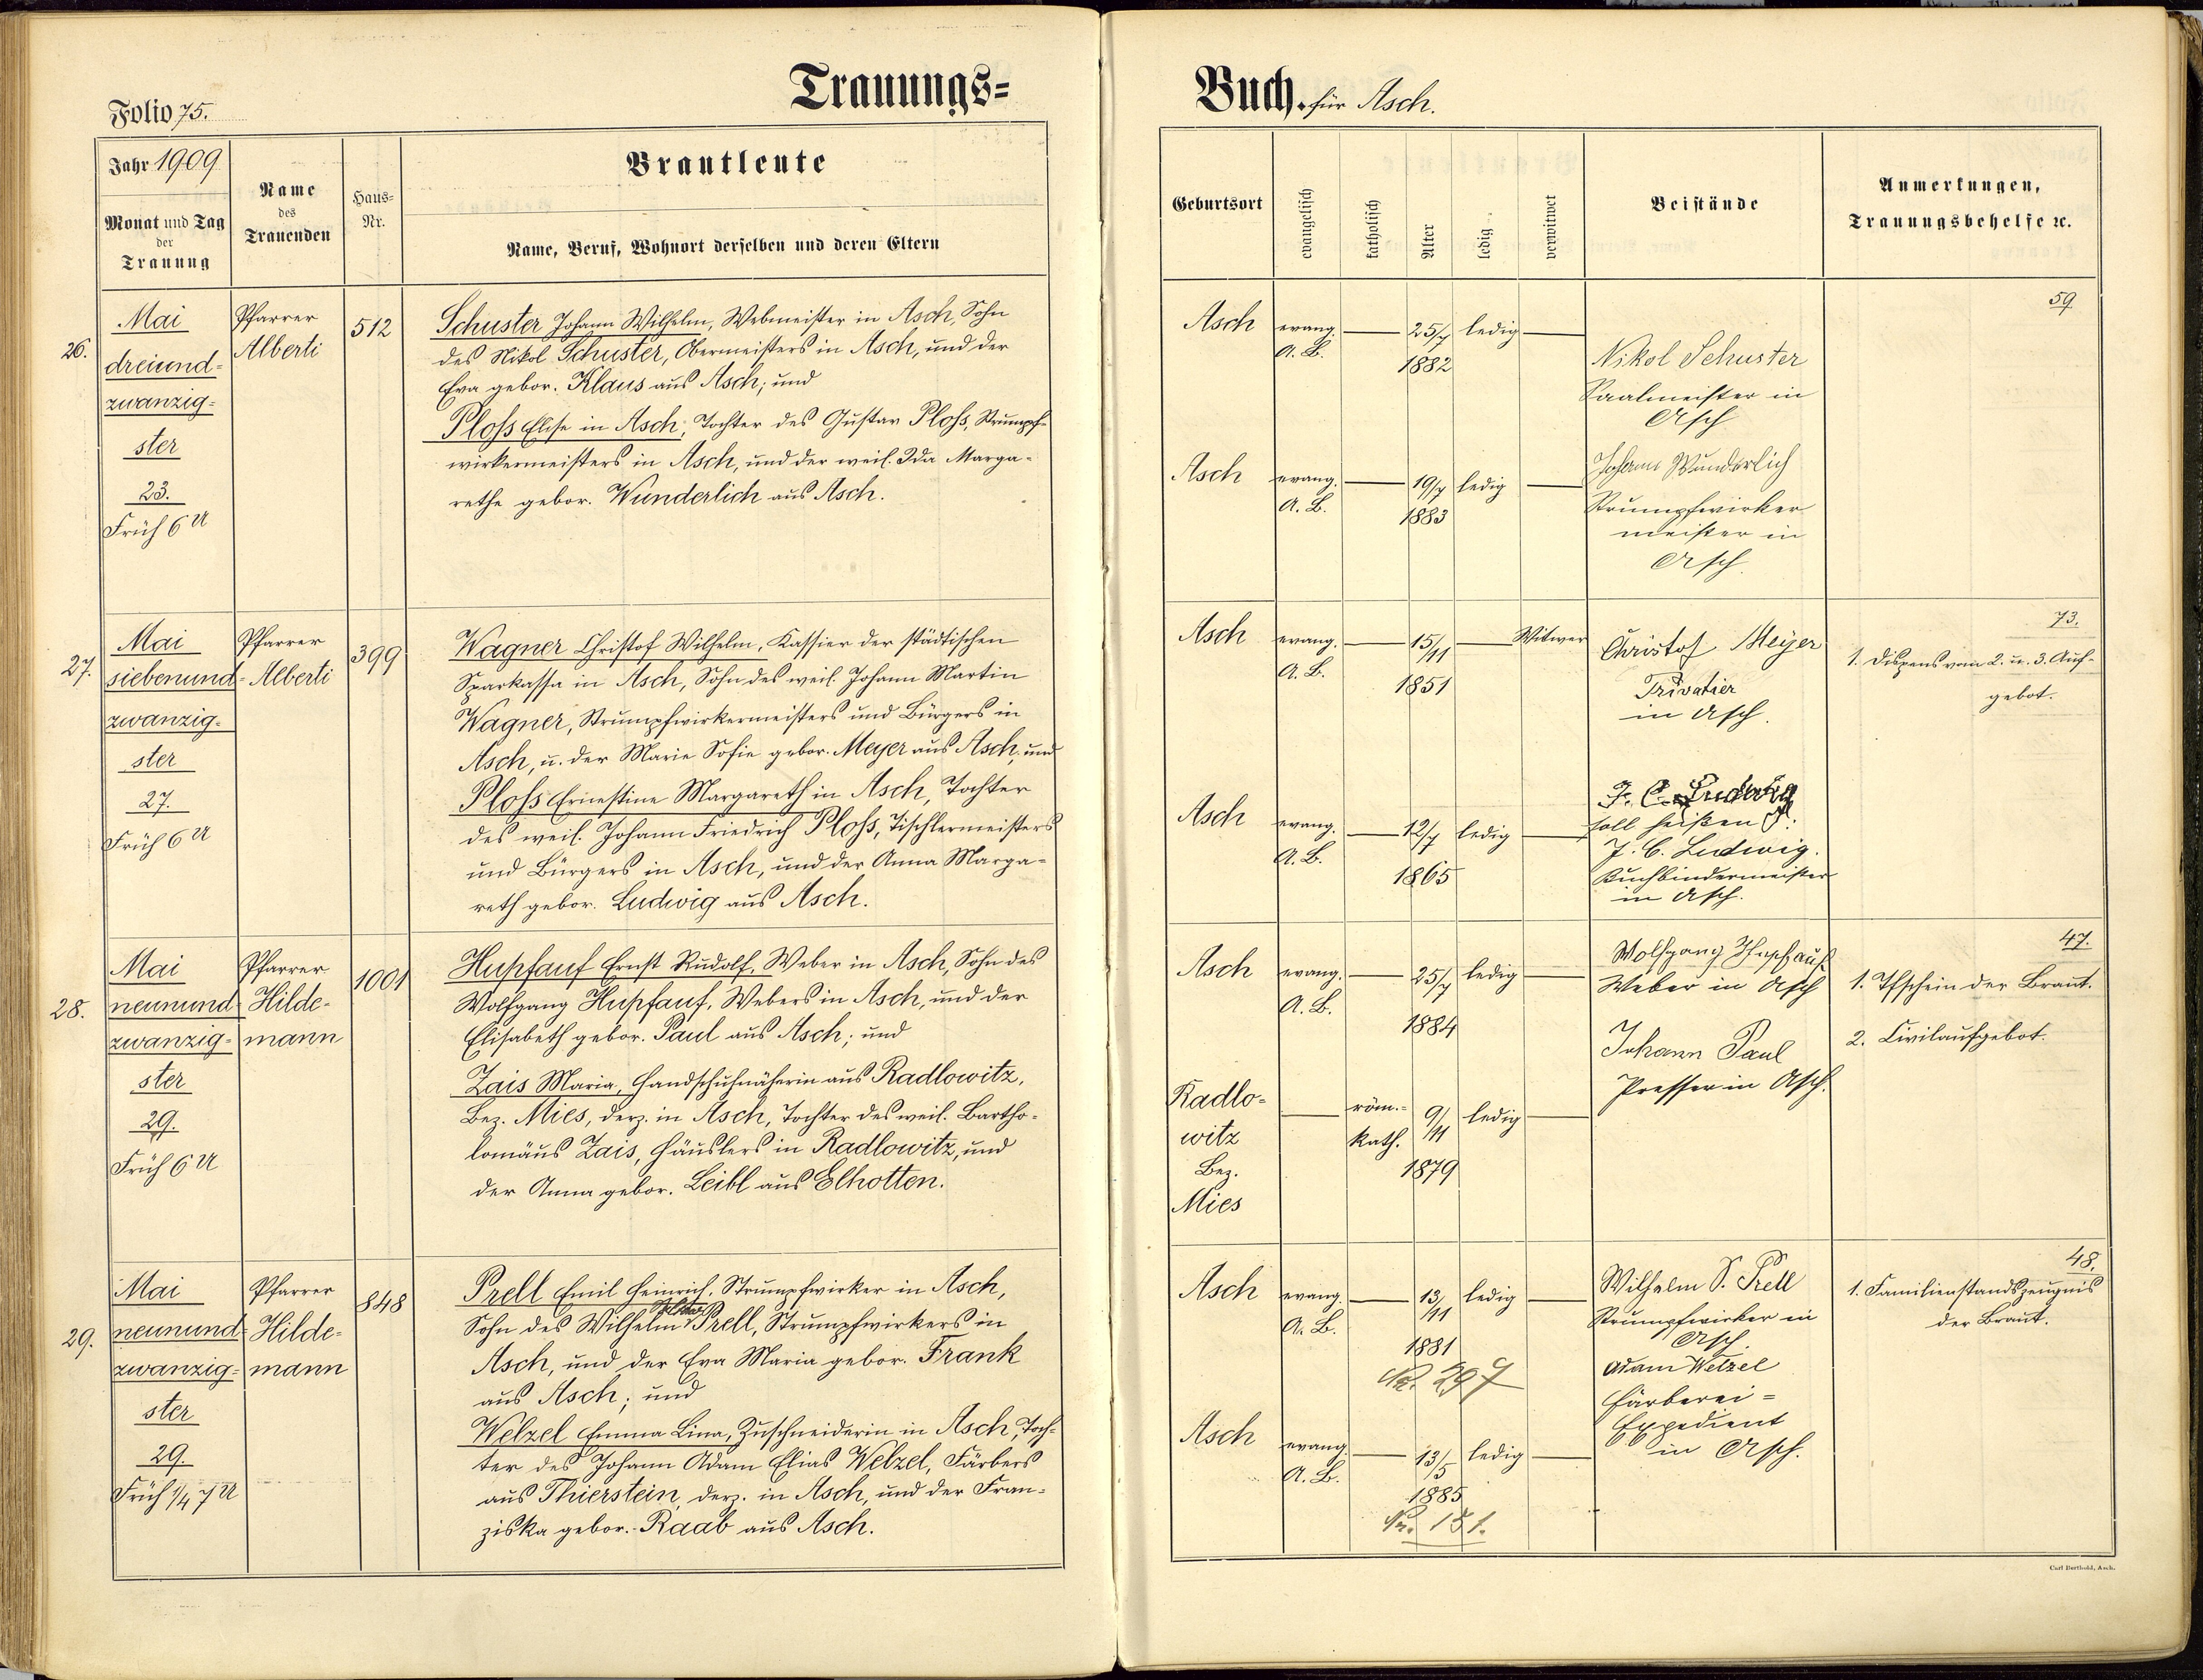 Trauungs=
Folio 75.
Jahr 1909
Monat und Tag
der
Trauung
Name
des
Trauenden
Haus-
Nr.
Brautleute
Name, Beruf, Wohnort derselben und deren Eltern
26.
Mai
dreiund-
zwanzig-
ster
23.
Früh 6 U
Pfarrer
Alberti
512
Schuster Johann Wilhelm, Webmeister in Asch, Sohn
des Nikol Schuster, Obermeisters in Asch, und der
Eva gebor. Klaus aus Asch; und
Ploß Elise in Asch, Tochter des Gustav Ploß, Strumpf-
wirkermeisters in Asch, und der weil. Ida Marga-
rethe gebor. Wunderlich aus Asch.
27.
Mai
siebenund-
zwanzig-
ster
27.
Früh 6 U
Pfarrer
Alberti
399
Wagner Christof Wilhelm, Kassier der städtischen
Sparkassa in Asch, Sohn des weil. Johann Martin
Wagner, Strumpfwirkermeisters und Bürgers in
Asch, u. der Marie Sofie gebor. Meyer aus Asch, und
Ploß Ernestine Margareth in Asch, Tochter
des weil. Johann Friedrich Ploß, Tischlermeisters
und Bürgers in Asch, und der Anna Marga-
reth gebor. Ludwig aus Asch.
28.
Mai
neunund-
zwanzig-
ster
29.
Früh 6 U
Pfarrer
Hilde-
mann
1001
Hupfauf Ernst Rudolf, Weber in Asch, Sohn des
Wolfgang Hupfauf, Webers in Asch, und der
Elisabeth gebor. Paul aus Asch; und
Zais Maria, Handschuhnäherin aus Radlowitz,
Bez. Mies, derz. in Asch, Tochter des weil. Bartho-
lomäus Zais, Häuslers in Radlowitz, und
der Anna gebor. Leibl aus Elhotten.
29.
Mai
neunund-
zwanzig-
ster
29.
Früh 1/4 7 U
Pfarrer
Hilde-
mann
848
Prell Emil Heinrich, Strumpfwirker in Asch,
Sohn des Wilhelm Prell, Strumpfwirkers in
Asch, und der Eva Maria gebor. Frank
aus Asch; und
Welzel Emma Lina, Zuschneiderin in Asch, Toch-
ter des Johann Adam Elias Welzel, Färbers
aus Thierstein, derz. in Asch, und der Fran-
ziska gebor. Raab aus Asch.
Buch. für Asch.
Geburtsort
evangelisch
katholisch
Alter
ledig
verwitwet
Beistände
Anmerkungen,
Trauungsbehelfe ec.
Asch
evang.
A. B.
25/7
1882
ledig
Nikol Schuster
Saalmeister in
Asch
59
Asch
evang.
A. B.
19/7
1883
ledig
Johann Wunderlich
Strumpfwirker
meister in
Asch.
Asch
evang.
A. B.
15/11
1851
Witwer
Christof Meyer
Privatier
in Asch.
73.
1. Dispens vom 2. u. 3. Auf-
gebot.
Asch
evang.
A. B.
12/7
1865
ledig
J. C. Ludwig
soll heißen
J. C. Ludwig.
Buchbindermeister
in Asch.
Asch
evang.
A. B.
25/7
1884
ledig
Wolfgang Hupfauf
Weber in Asch
47.
1. Tfschein der Braut.
2. Civilaufgebot.
Johann Paul
Presser in Asch.
Radlo-
witz
Bez.
Mies
röm.-
kath.
9/11
1879
ledig
Asch
evang.
A. B.
13/11
1881
No. 297
ledig
Wilhelm S. Prell
Strumpfwirker in
Asch.
48.
1. Familienstandszeugnis
der Braut.
Adam Welzel
Färberei=
Expedient
in Asch.
Asch
evang.
A. B.
13/5
1885
No. 151.
ledig
Carl Berthold, Asch.